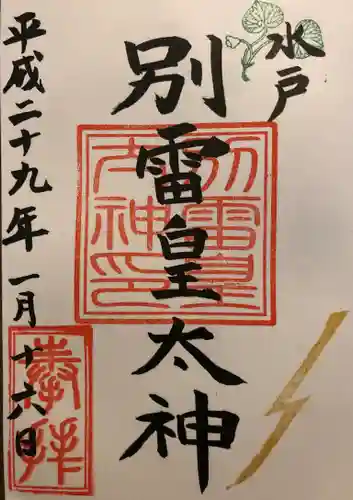 水戸
別雷皇太神
平成二十九年一月十六日
別雷皇太神印
奉拝